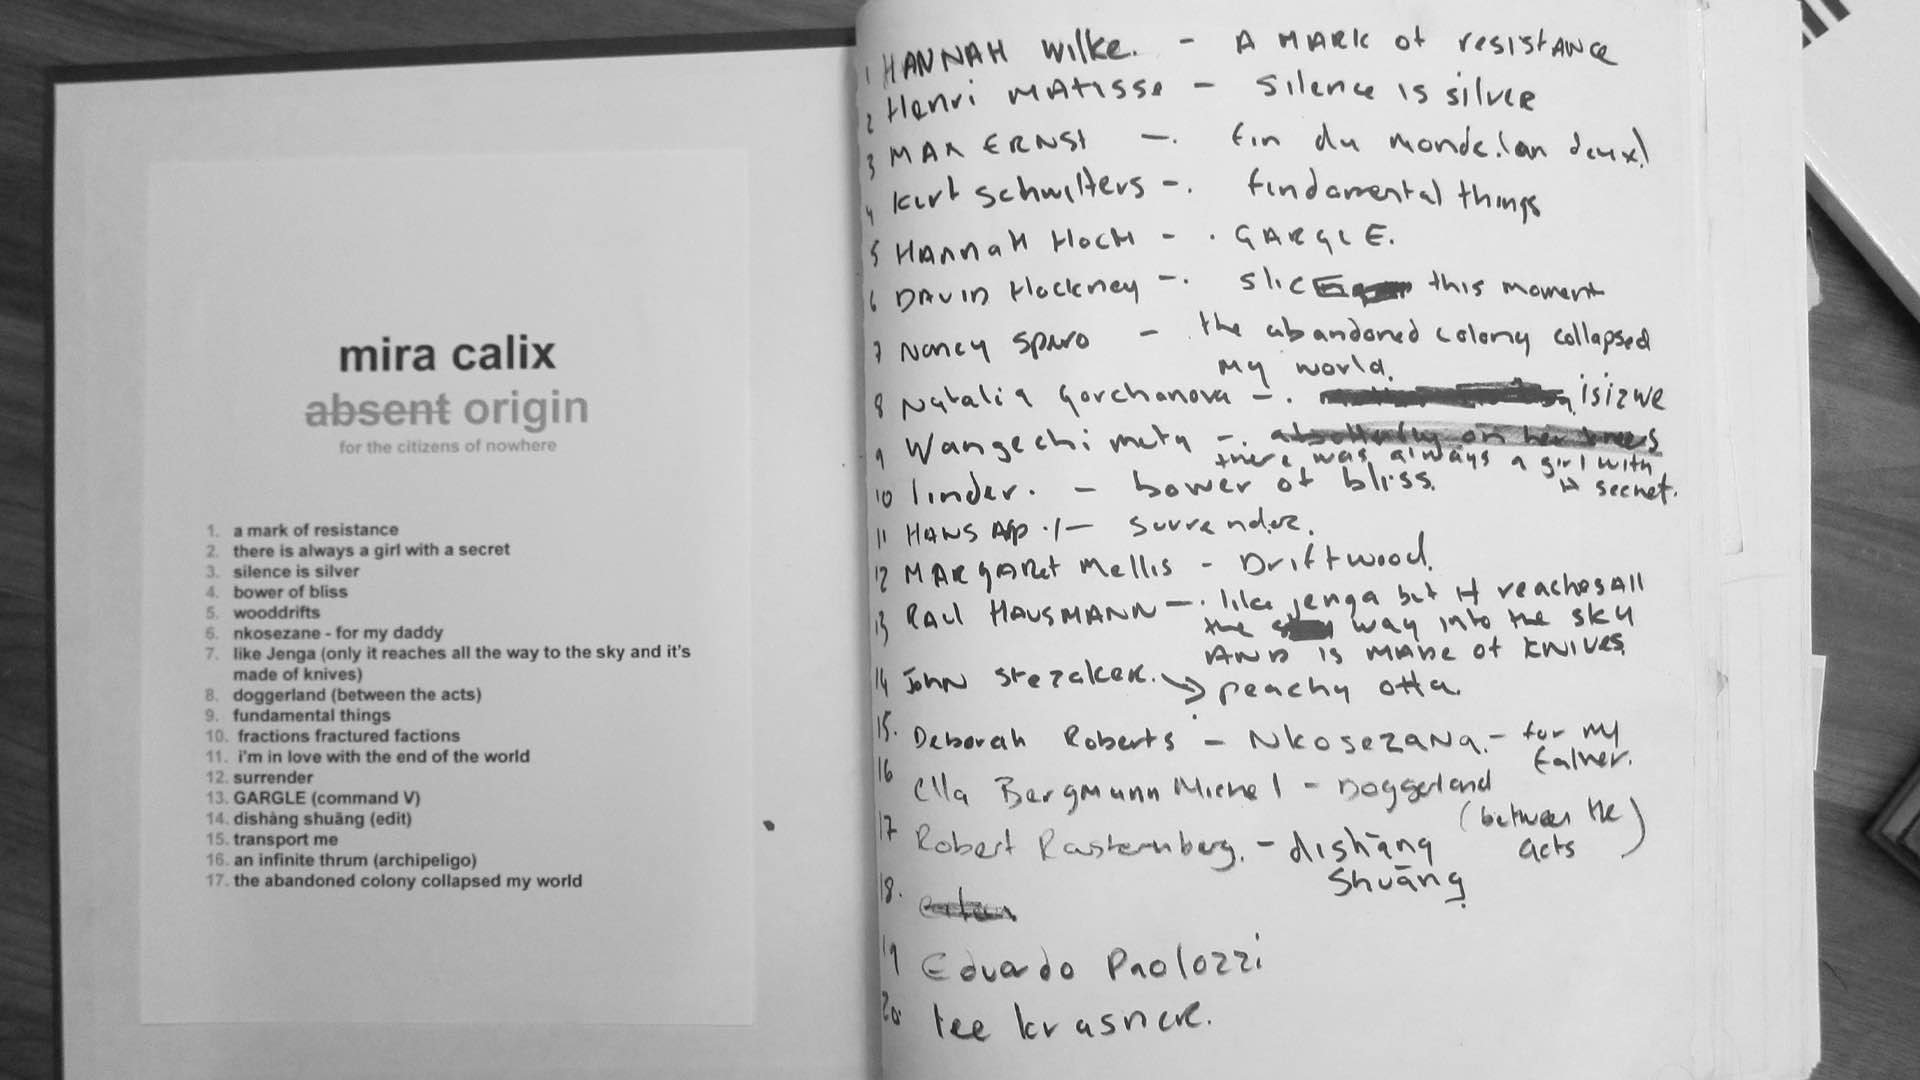 mira calix
absent origin
for the citizens of nowhere
1. a mark of resistance
2. there is always a girl with a secret
3. silence is silver
4. bower of bliss
5. wooddrifts
6. nkosezane - for my daddy
7. like Jenga (only it reaches all the way to the sky and it's
made of knives)
8. doggerland (between the acts)
9. fundamental things
10. fractions fractured factions
11. i'm in love with the end of the world
12. surrender
13. GARGLE (command V)
14. dishàng shuāng (edit)
15. transport me
16. an infinite thrum (archipeligo)
17. the abandoned colony collapsed my world
1 HANNAH Wilke. - A MARK of resistANce
2 Henri MATisse - silence is silver
3 MAX ERNST -. fin du monde.(an deux)
4 kurt Schwitters -. fundamental things
5 HAnnaH HocH - . GARGLE.
6 DAVID Hockney -. slicE this moment
7 Nancy Spero - the abandoned colony collapsed
my world.
8 Natalia Gorchanova -. isizwe
9 Wangechi mutu -. on her knees
there was always a girl with
a secret.
10 linder. - bower of bliss.
11 HANS Arp ./- surrender.
12 MARGARet Mellis - Driftwood.
13 RAUL HAUSMANN -. like jenga but it reaches All
the way into the sky
AND is MADE of KNIVES.
14 John Stezaker. → peachy otta.
15. Deborah Roberts - NkosezaNa.- for my
father.
16 Ella Bergmann Michel - Doggerland
(between the
acts)
17 Robert Rasternberg. - dishāng
Shuāng.
18.
19 Eduardo Paolozzi
20. lee krasner.